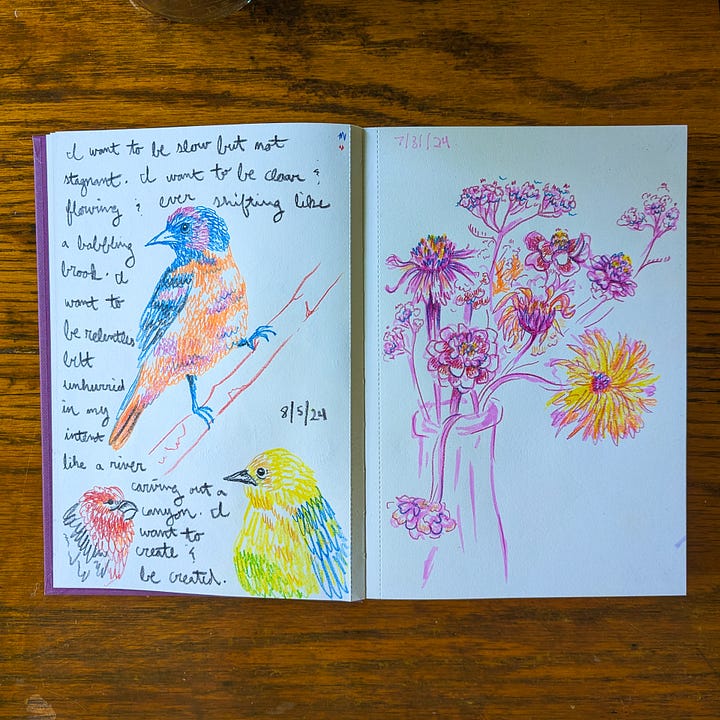 I want to be slow but not
stagnant. I want to be clear &
flowing & ever shifting like
a babbling
brook. I
want to
be relentless
but
unhurried
in my
intent
like a river
carving out a
canyon. I
want to
create &
be created.
8/5/24
7/31/24